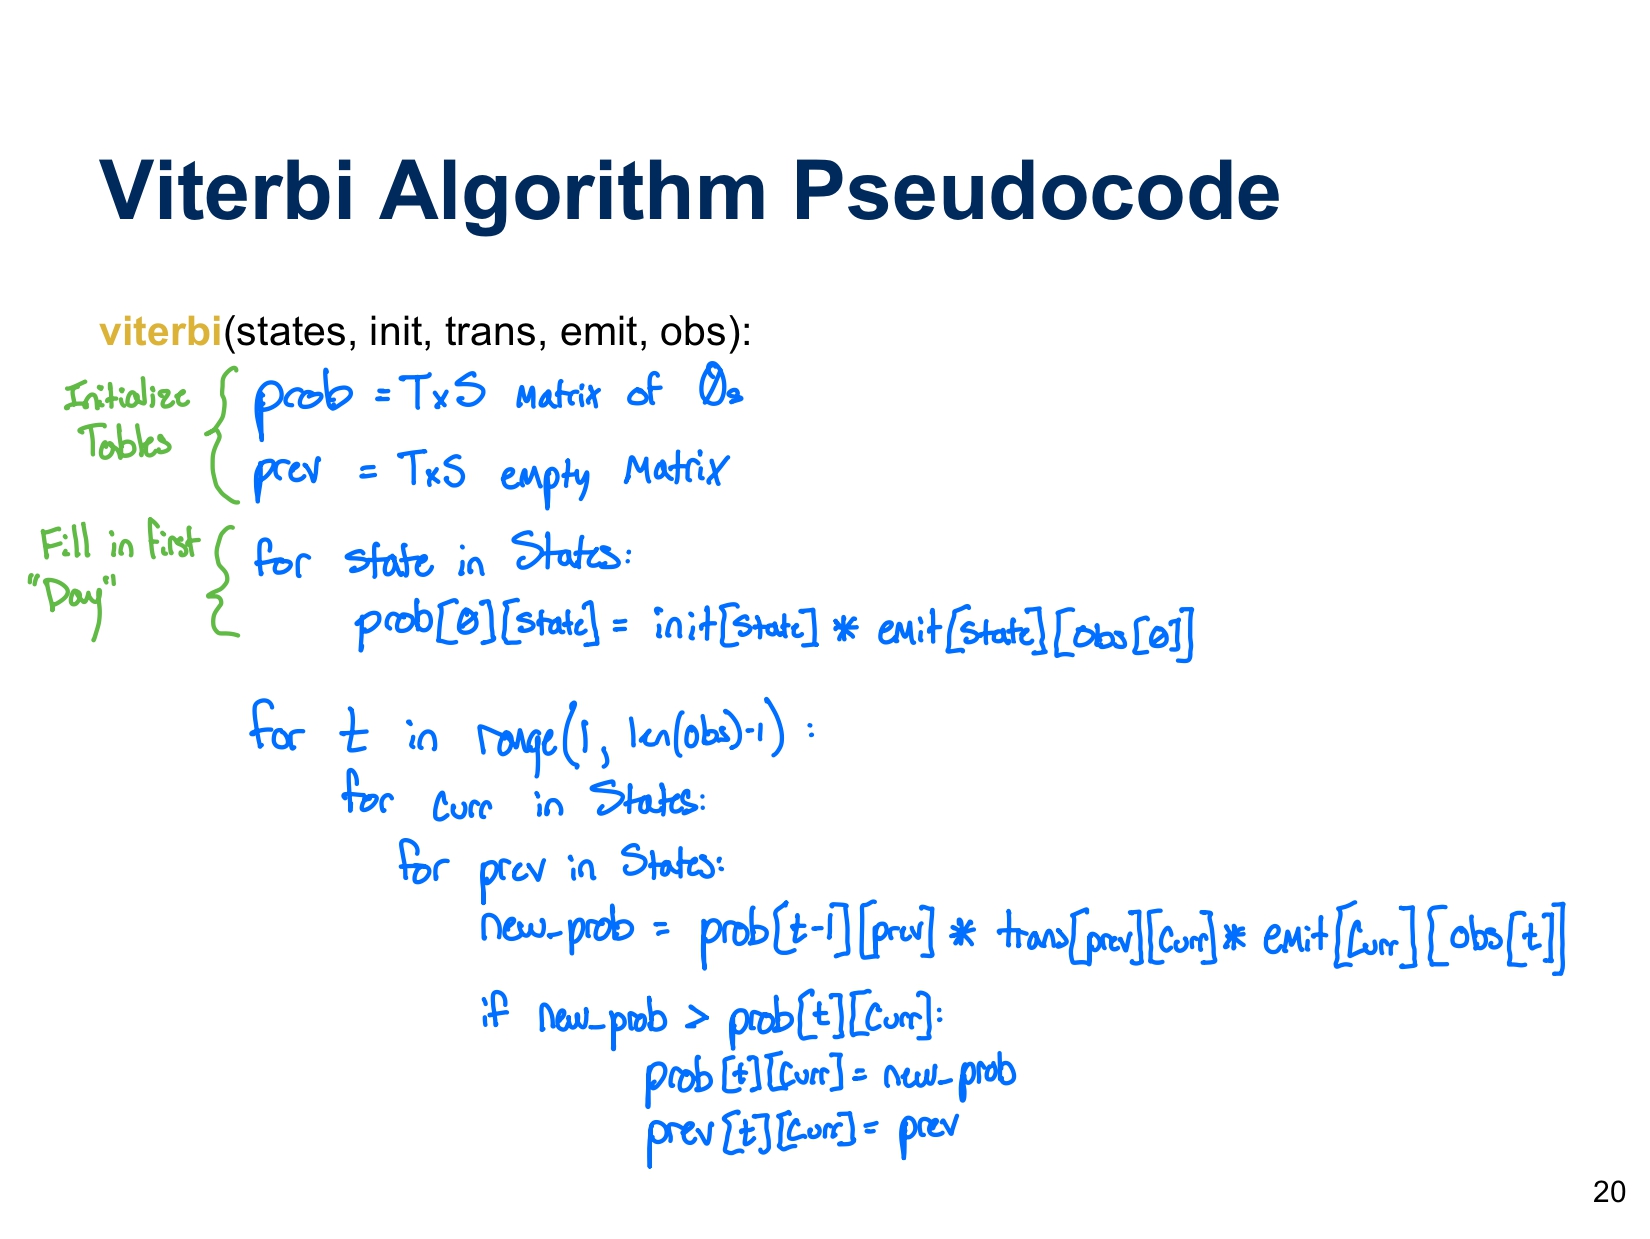 Viterbi Algorithm Pseudocode
viterbi(states, init, trans, emit, obs):
Initialize
Tables
prob = TxS Matrix of 0s
prev = TxS empty Matrix
Fill in first
"Day"
for state in States:
prob[0][state] = init[state] * emit[state][obs[0]]
for t in range(1, len(obs)-1):
for curr in States:
for prev in States:
new_prob = prob[t-1][prev] * trans[prev][curr] * emit[curr][obs[t]]
if new_prob > prob[t][curr]:
prob[t][curr] = new_prob
prev[t][curr] = prev
20